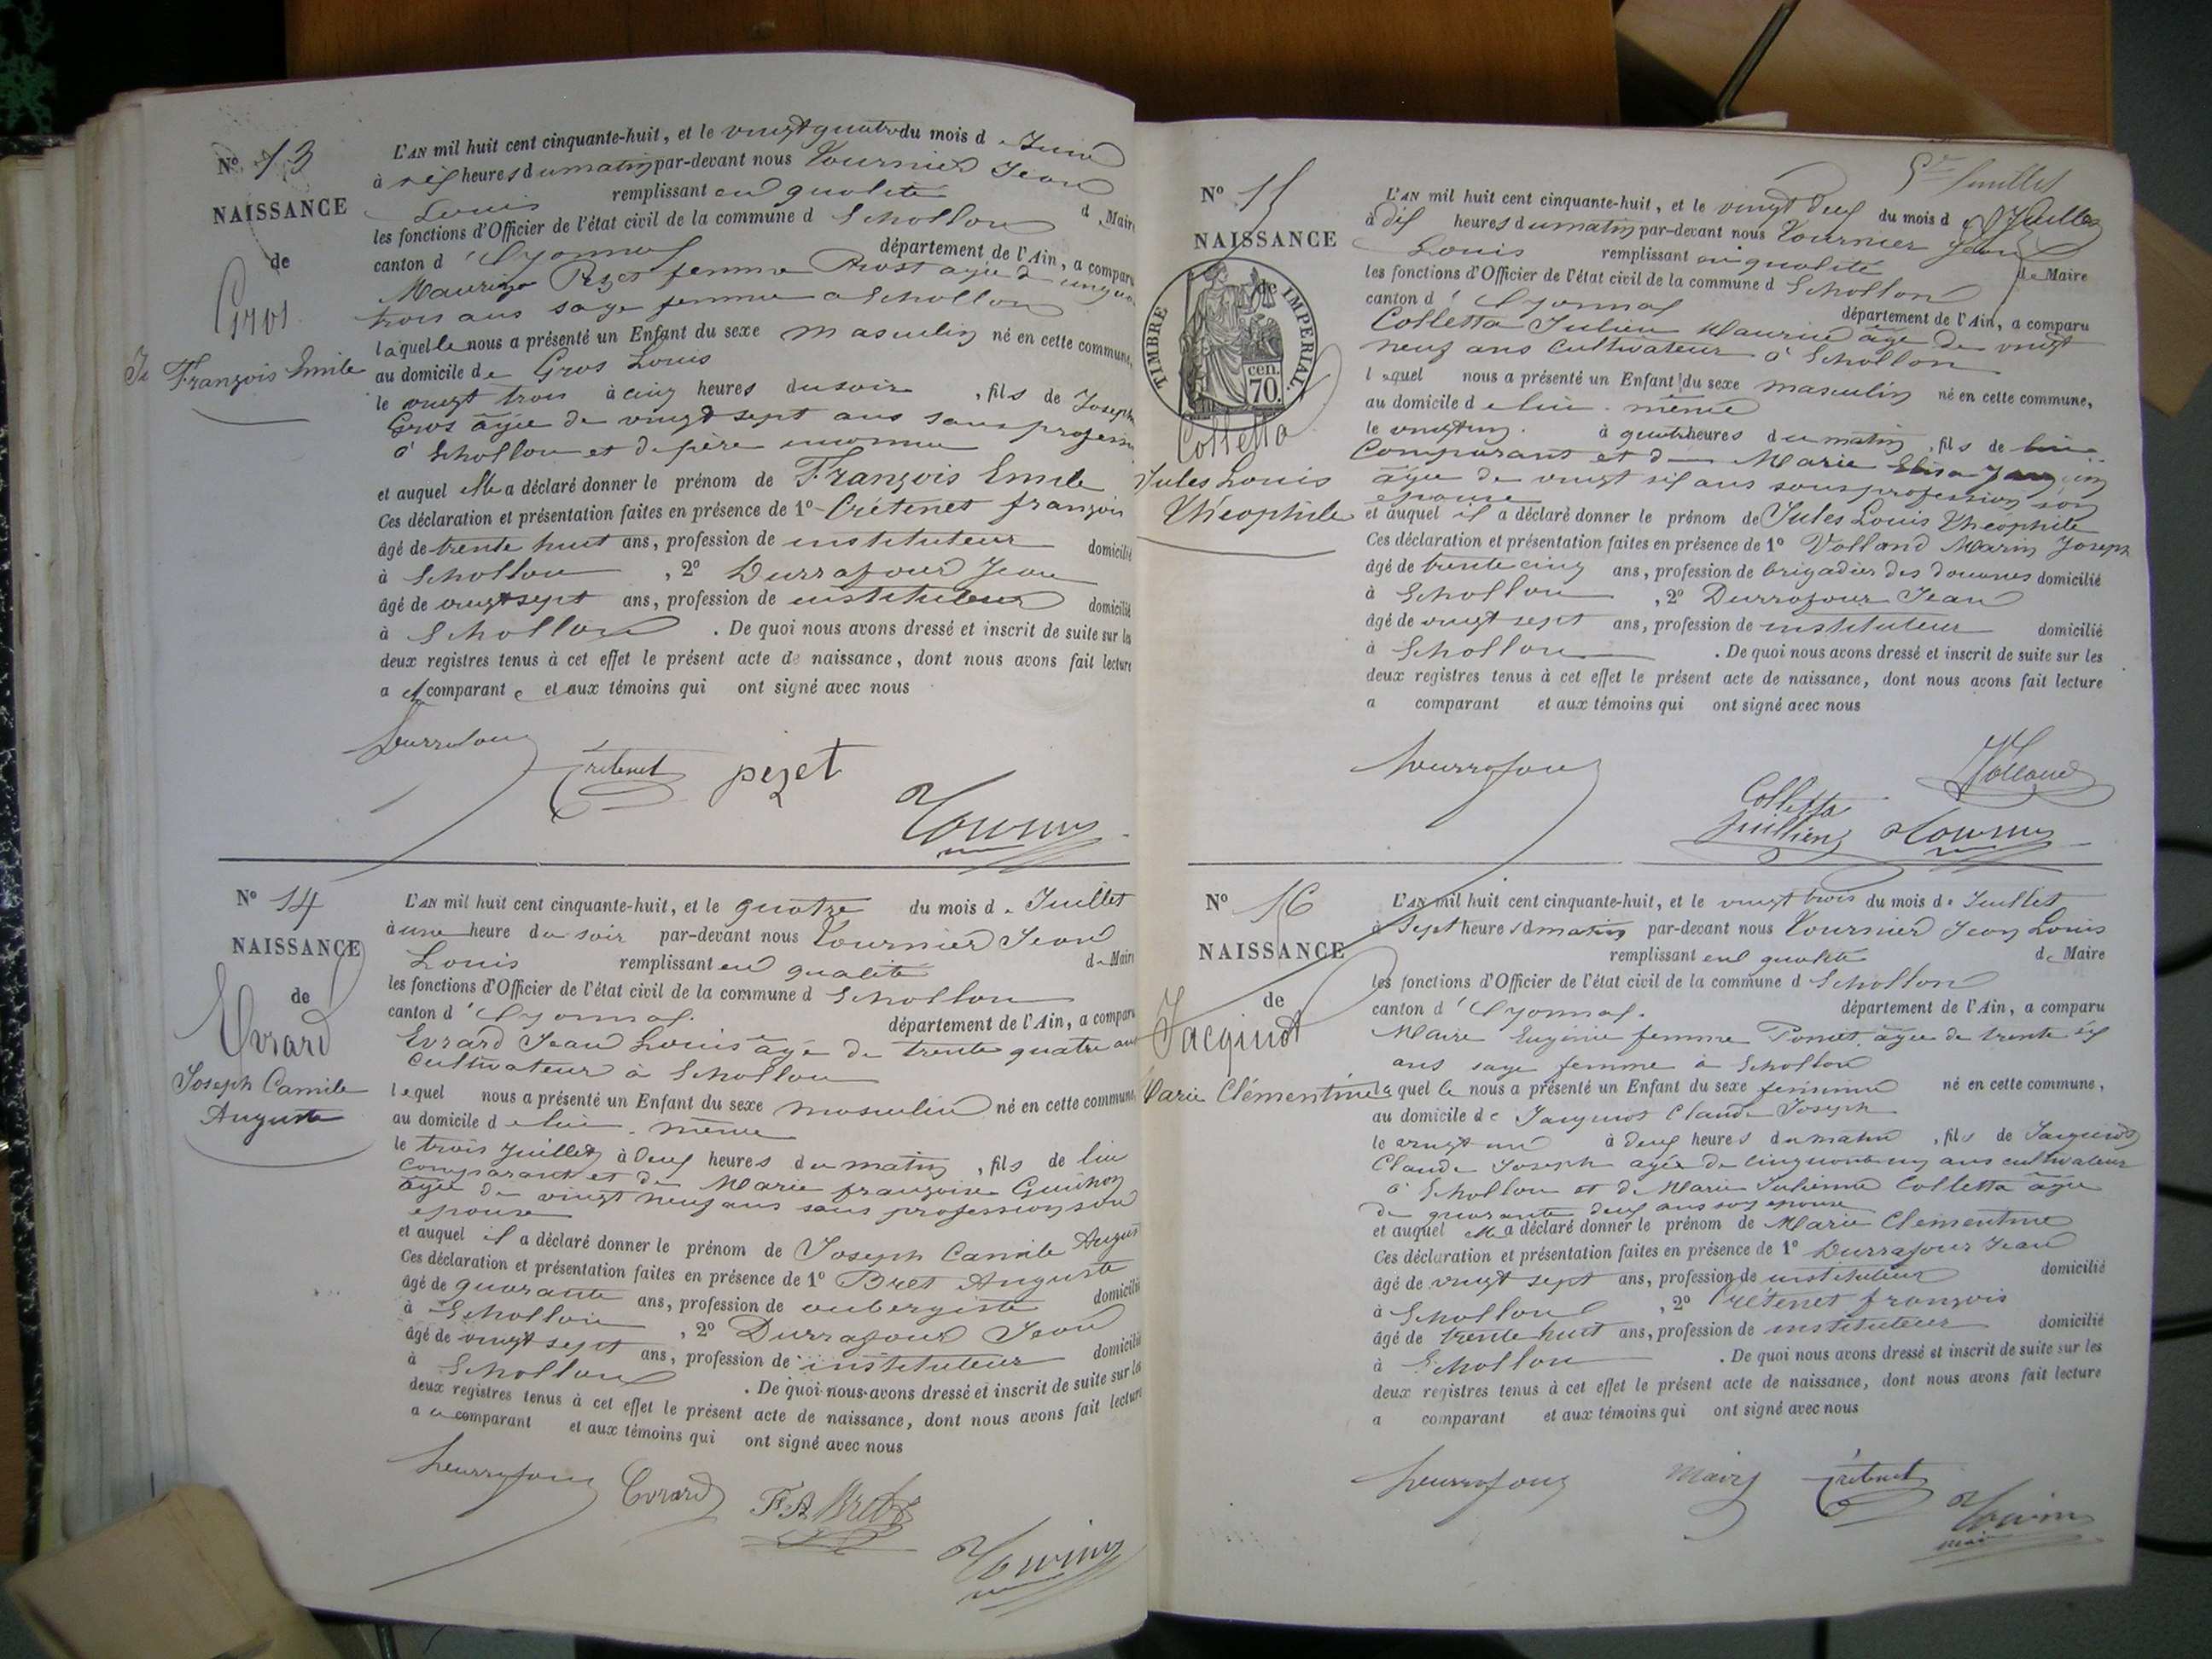 Nº 13
NAISSANCE
de
Gros
François Emile
L'AN mil huit cent cinquante-huit, et le vingt quatre du mois de Juin
à six heures du matin par-devant nous Tournier Jean
Louis remplissant en qualité de Maire
les fonctions d'Officier de l'état civil de la commune d'Echallon
canton d'Oyonnax département de l'Ain, a comparu
Pezet femme Prost agée de
trois ans sage femme a Echallon
laquelle nous a présenté un Enfant du sexe masculin né en cette commune,
au domicile de Gros Louis
le vingt trois à cinq heures du soir, fils de Joseph
Gros agée de vingt sept ans sans profession
à Echallon et de père inconnu
et auquel elle a déclaré donner le prénom de François Emile
Ces déclaration et présentation faites en présence de 1º Crétenet françois
âgé de trente huit ans, profession de instituteur domicilié
à Echallon, 2º Durrafour Jean
âgé de vingt sept ans, profession de instituteur domicilié
à Echallon. De quoi nous avons dressé et inscrit de suite sur les
deux registres tenus à cet effet le présent acte de naissance, dont nous avons fait lecture
a comparante et aux témoins qui ont signé avec nous
Durrafour
Crétenet pezet
Tournier
Nº 14
NAISSANCE
de
Evrard
Joseph Camile
Auguste
L'AN mil huit cent cinquante-huit, et le quatre du mois de Juillet
à une heure du soir par-devant nous Tournier Jean
Louis remplissant en qualité de Maire
les fonctions d'Officier de l'état civil de la commune d Echallon
canton d'Oyonnax. département de l'Ain, a comparu
Evrard Jean Louis agé de trente quatre ans
cultivateur à Echallon
lequel nous a présenté un Enfant du sexe masculin né en cette commune,
au domicile de lui-même
le trois Juillet à deux heures du matin, fils de lui
comparant et de Marie françoise Guichon
agée de vingt neuf ans sans profession son
epouse
et auquel il a déclaré donner le prénom de Joseph Camile August
Ces déclaration et présentation faites en présence de 1º Bret Auguste
âgé de quarante ans, profession de aubergiste domicilié
à Echallon, 2º Durrafour Jean
âgé de vingt sept ans, profession de instituteur domicilié
à Echallon. De quoi nous avons dressé et inscrit de suite sur les
deux registres tenus à cet effet le présent acte de naissance, dont nous avons fait lecture
a u comparant et aux témoins qui ont signé avec nous
Durrafour Evrard F A Bret
Tournier
Juillet
Nº 15
NAISSANCE
de
TIMBRE IMPERIAL.
70. cen.
Colletta
Jules Louis
Théophile
L'AN mil huit cent cinquante-huit, et le vingt deux du mois de Juillet
à dix heures du matin par-devant nous Tournier Jean
Louis remplissant en qualité de Maire
les fonctions d'Officier de l'état civil de la commune d Echallon
canton d'Oyonnax département de l'Ain, a comparu
Colletta Julien Maurice âgé de vingt
neuf ans cultivateur à Echallon
lequel nous a présenté un Enfant du sexe masculin né en cette commune,
au domicile de lui-même
le vingt un. à quatre heures du matin, fils de lui
comparant et de Marie Elisa
agée de vingt six ans sans profession son
epouse
et auquel il a déclaré donner le prénom de Jules Louis Théophile
Ces déclaration et présentation faites en présence de 1º Volland Marin Joseph
âgé de trente cinq ans, profession de brigadier des douanes domicilié
à Echallon, 2º Durrafour Jean
âgé de vingt sept ans, profession de instituteur domicilié
à Echallon. De quoi nous avons dressé et inscrit de suite sur les
deux registres tenus à cet effet le présent acte de naissance, dont nous avons fait lecture
a comparant et aux témoins qui ont signé avec nous
Durrafour Volland
Colletta
Juillien Tournier
Nº 16
NAISSANCE
de
Jacquiot
Marie Clémentine
L'AN mil huit cent cinquante-huit, et le vingt trois du mois de Juillet
à sept heures du matin par-devant nous Tournier Jean Louis
remplissant en qualité de Maire
les fonctions d'Officier de l'état civil de la commune d Echallon
canton d'Oyonnax. département de l'Ain, a comparu
Maire Eugénie femme Poncet agée de trente six
ans sage femme à Echallon
laquelle nous a présenté un Enfant du sexe féminin né en cette commune,
au domicile de Jacquiot Claude Joseph
le vingt un à deux heures du matin, fils de Jacquiot
Claude Joseph agée de cinquante un ans cultivateur
à Echallon et de Marie Julienne Colletta agée
de quarante deux ans son epouse
et auquel elle a déclaré donner le prénom de Marie Clémentine
Ces déclaration et présentation faites en présence de 1º Durrafour Jean
âgé de vingt sept ans, profession de instituteur domicilié
à Echallon, 2º Crétenet françois
âgé de trente huit ans, profession de instituteur domicilié
à Echallon. De quoi nous avons dressé et inscrit de suite sur les
deux registres tenus à cet effet le présent acte de naissance, dont nous avons fait lecture
a comparant et aux témoins qui ont signé avec nous
Durrafour Maire Crétenet
Tournier